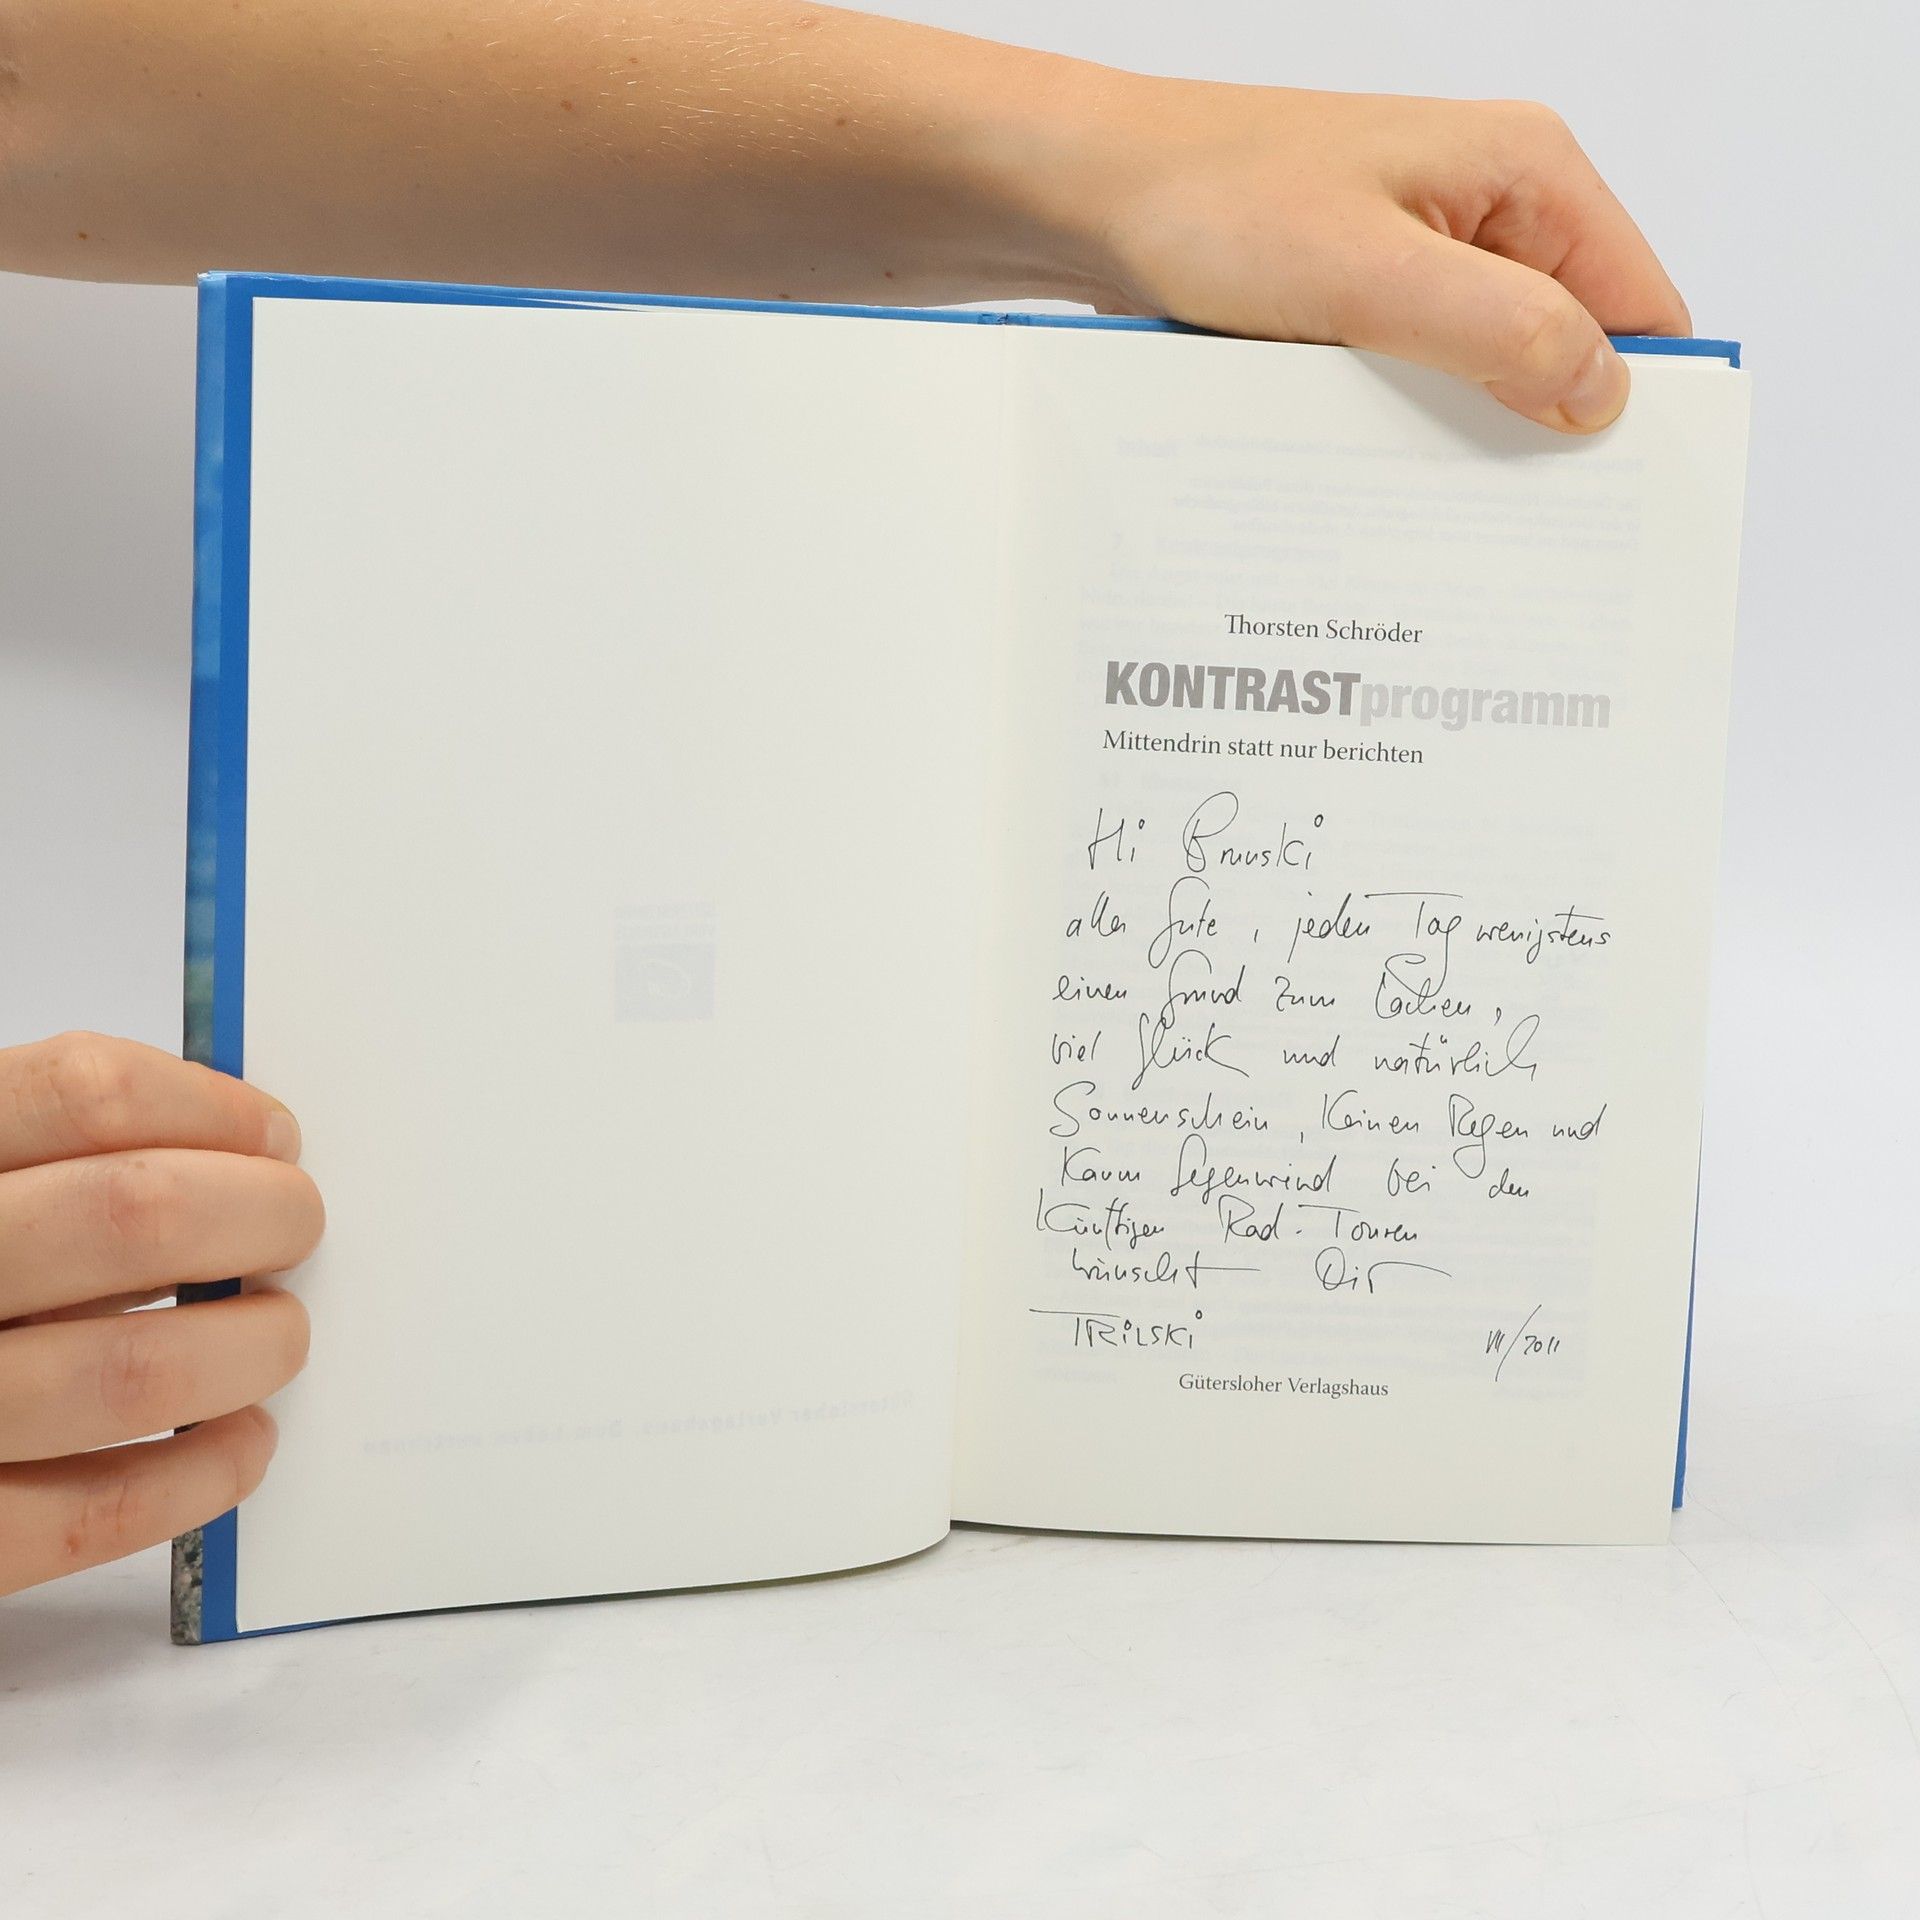 Thorsten Schröder
KONTRASTprogramm
Mittendrin statt nur berichten
Hi Bruuski
alles Gute, jeden Tag wenigstens
einen Grund zum Lachen,
viel Glück und natürlich
Sonnenschein, Keinen Regen und
Kaum Gegenwind bei den
Künftigen Rad-Touren
wünscht Dir
TRILSKI VII/2011
Gütersloher Verlagshaus